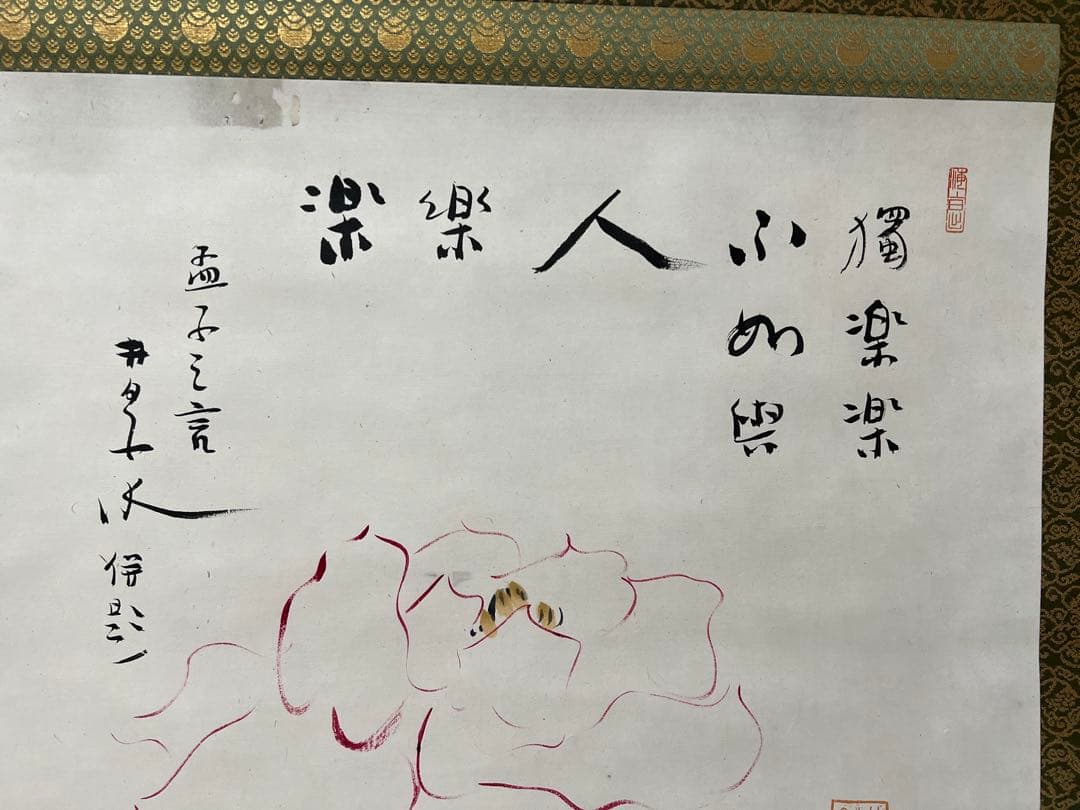 獨楽楽
不如與
人
樂
楽
孟子之言
井泉水
併題